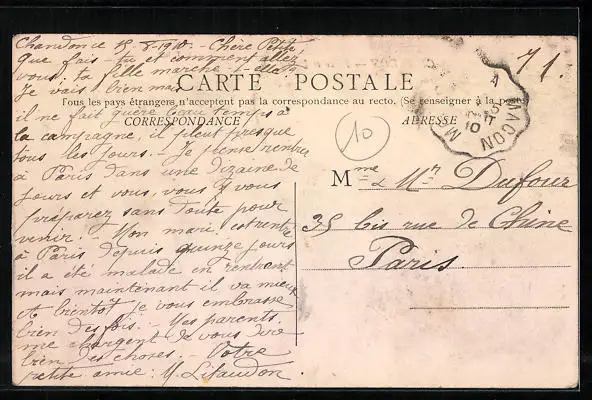 Chandon ce 15-8-1910 - Chère Petite
Que fais-tu et comment allez
vous, ta fille marche-t-elle?
Je vais bien mais
il ne fait guère beau temps à
la campagne, il pleut presque
tous les jours. - Je pense rentrer
à Paris dans une dizaine de
jours et vous, vous y vous
préparez sans doute pour
venir. - Mon mari est rentré
à Paris depuis quinze jours
il a été malade en rentrant
mais maintenant il va mieux
A bientôt je vous embrasse
bien des fois. - Mes parents
me chargent de vous dire
bien des choses. - Votre
petite amie: M.
CARTE POSTALE
Tous les pays étrangers n'acceptent pas la correspondance au recto. (Se renseigner à la poste)
CORRESPONDANCE
ADRESSE
10
71.
A MACON
Mme & Mr Dufour
35 bis rue de Chine
Paris.